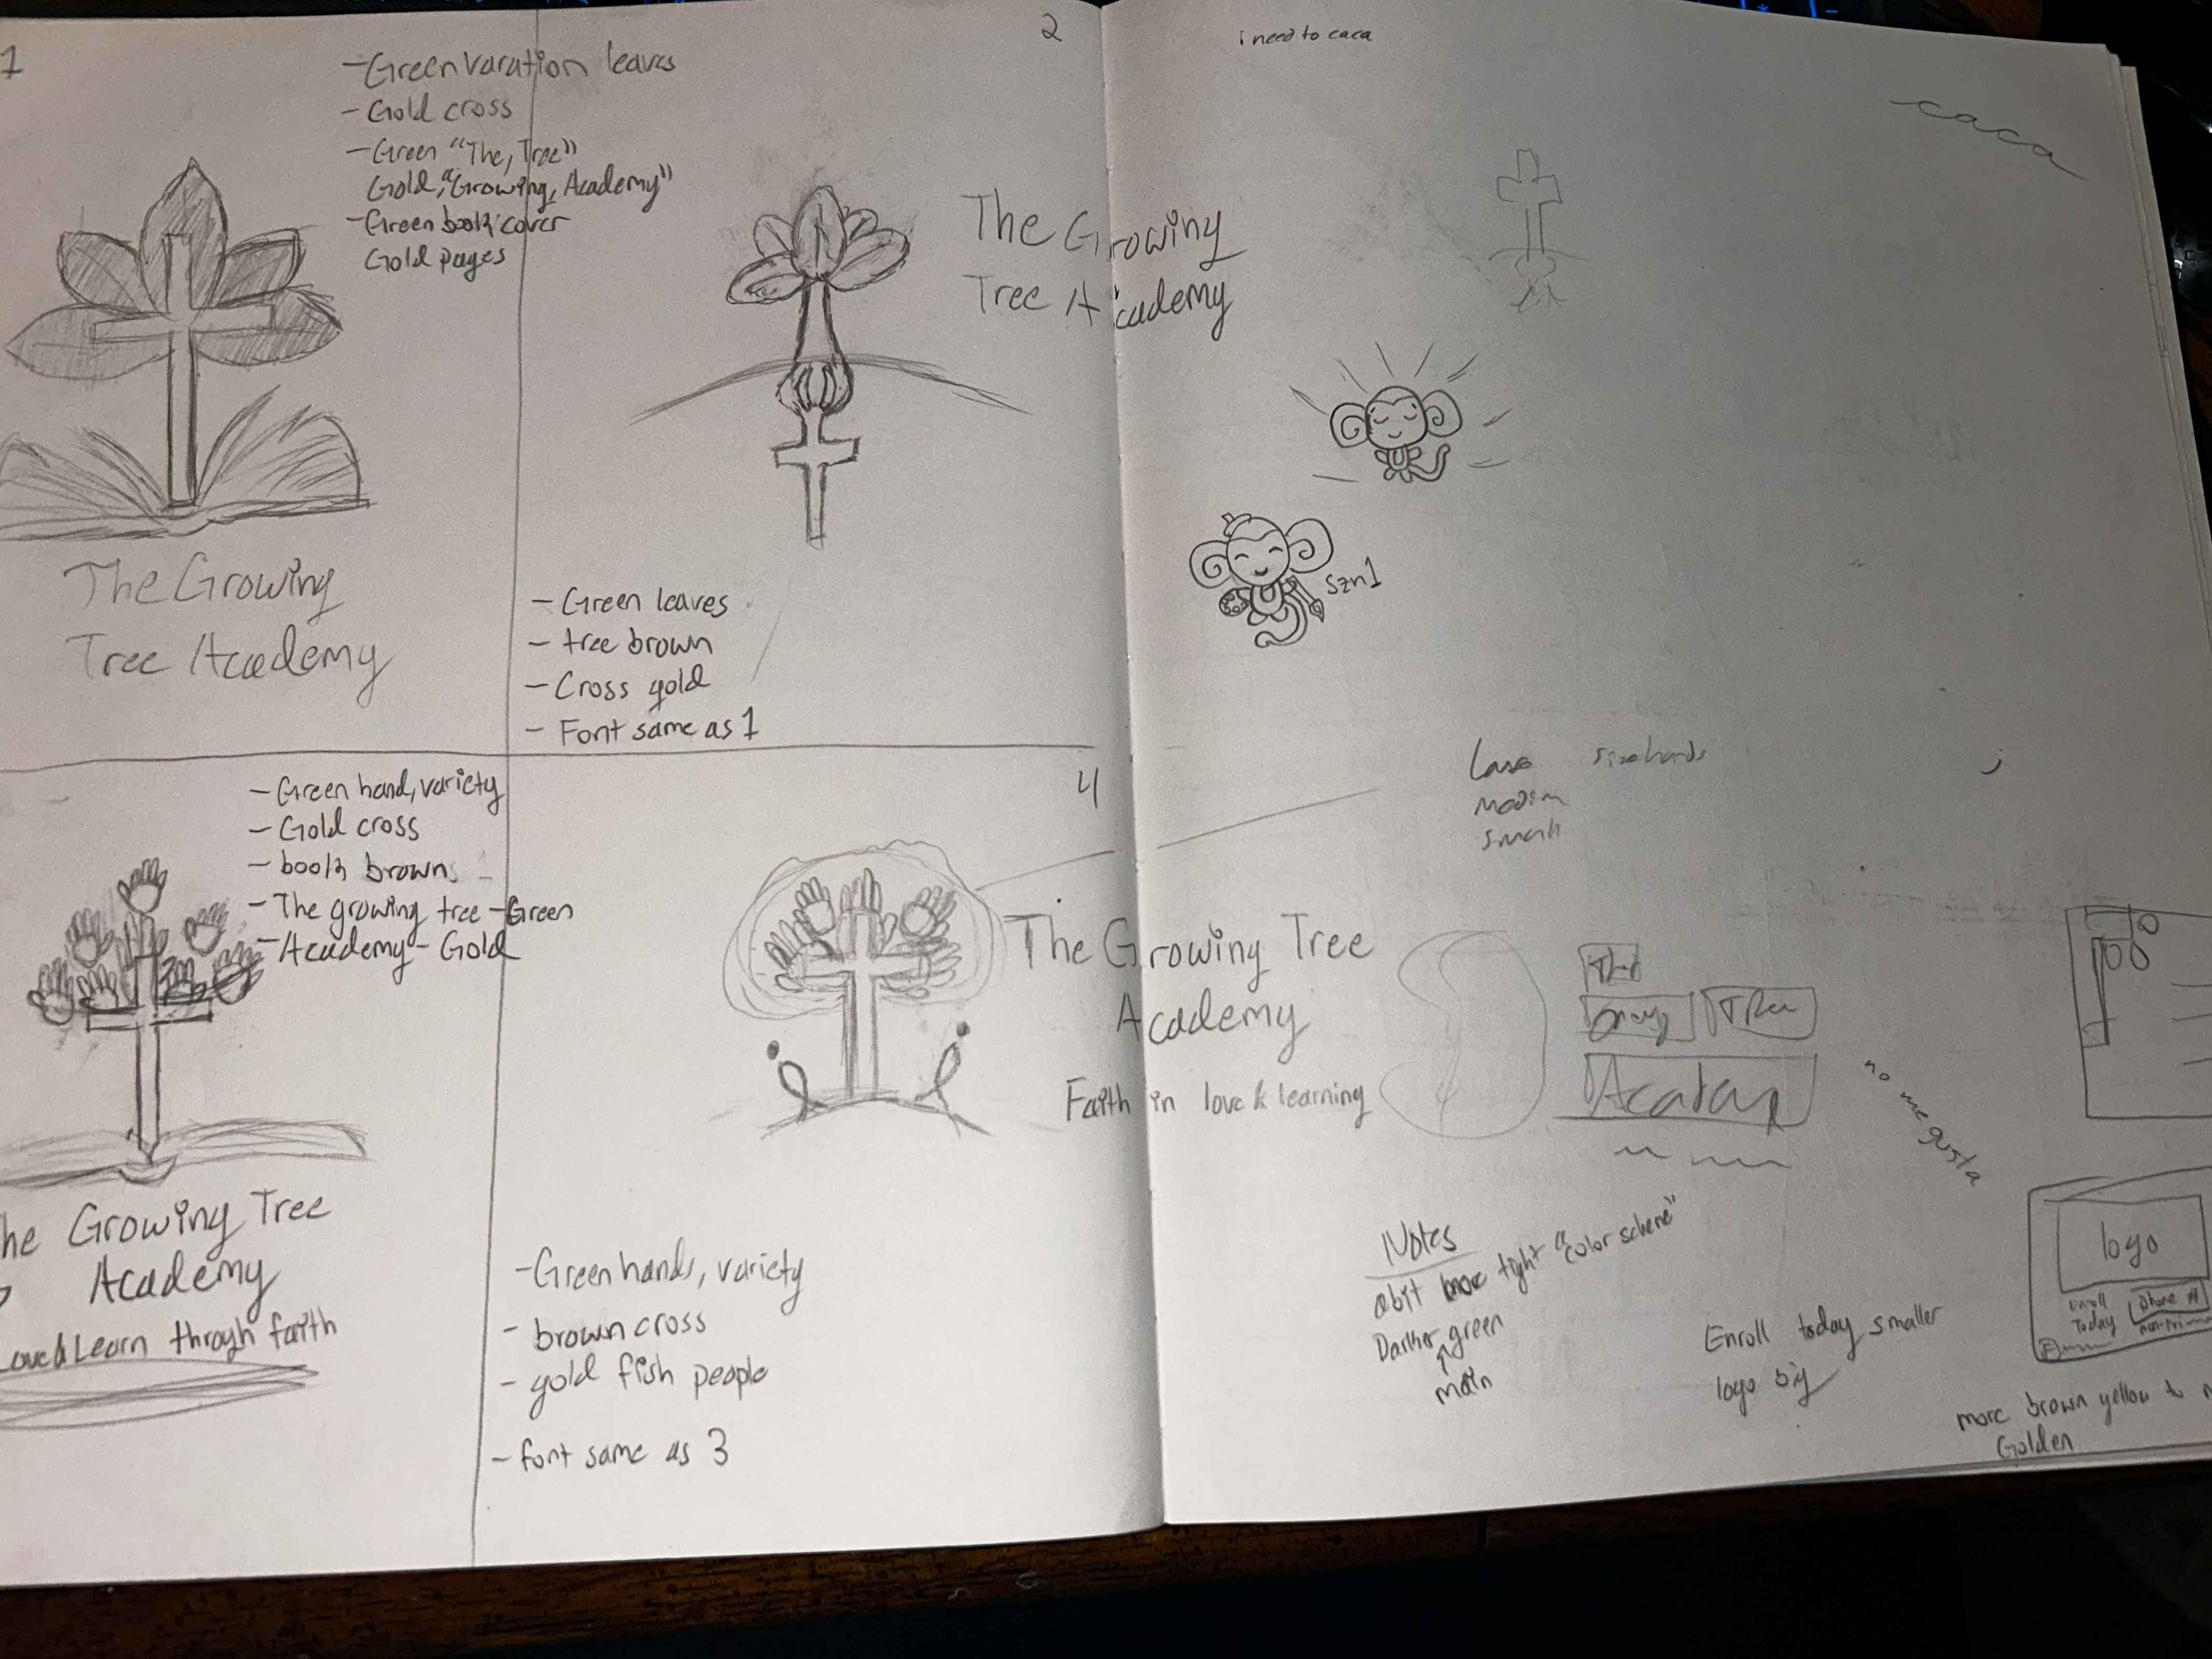 1
- Green varation leaves
- Gold cross
- Green "The, Tree"
Gold, "Growing, Academy"
- Green book cover
Gold pages
The Growing
Tree Academy
2
The Growing
Tree Academy
- Green leaves
- tree brown
- Cross gold
- Font same as 1
- Green hand, variety
- Gold cross
- book brown
- The growing tree - Green
- Academy - Gold
he Growing Tree
Academy
Love & Learn through faith
4
The Growing Tree
Academy
Faith in love & learning
- Green hands, variety
- brown cross
- gold fish people
- font same as 3
i need to caca
caca
szn1
hands
small
The
Tree
no me gusta
Notes
abit more tight "color scheme"
Darker green
main
Enroll today smaller
logo big
logo
Enroll
Today
phone #
more brown yellow to
Golden